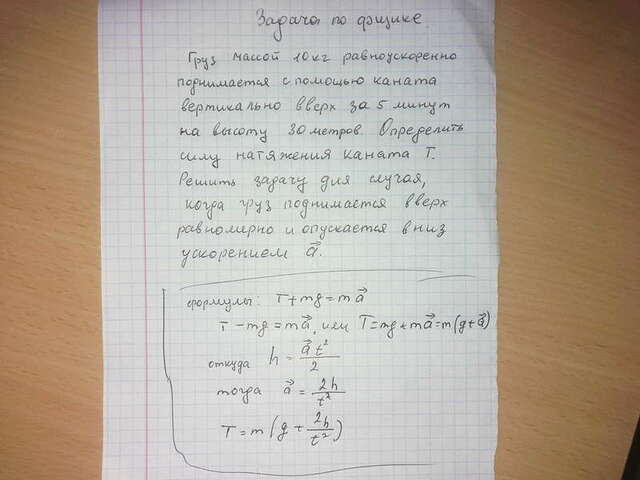 Задача по физике.
Груз массой 10 кг равноускоренно
поднимается с помощью каната
вертикально вверх за 5 минут
на высоту 30 метров. Определить
силу натяжения каната T.
Решить задачу для случая,
когда груз поднимается вверх
равномерно и опускается вниз
ускорением a⃗.
формулы: T+mg=ma⃗
T-mg=ma⃗, или T=mg+ma⃗=m(g+a⃗)
откуда h = a⃗t²/2
тогда a⃗ = 2h/t²
T=m(g+2h/t²)